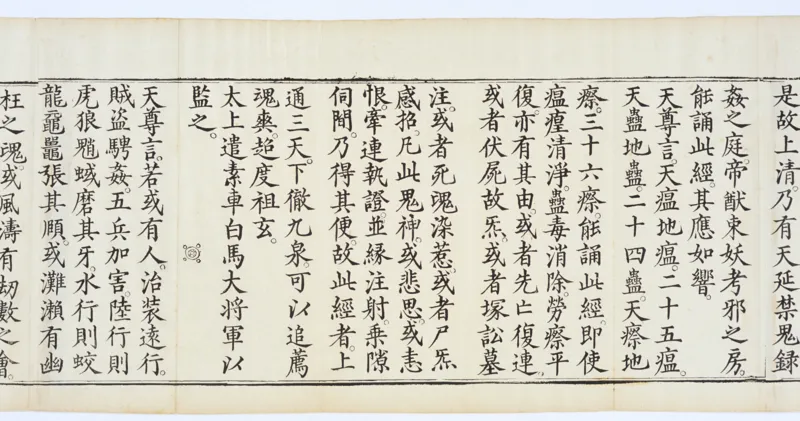 是故上清。乃有天延禁鬼錄
姦之庭。帝猷束妖考邪之房。
能誦此經。其應如響。
天尊言。天瘟地瘟。二十五瘟。
天蠱地蠱。二十四蠱。天瘵地
瘵。三十六瘵。能誦此經。即使
瘟㾮清淨。蠱毒消除。勞瘵平
復。亦有其由。或者先亡復連。
或者伏屍故炁。或者塚訟墓
注。或者死魂染惹。或者尸炁
感招。凡此鬼神。或悲思。或恚
恨。牽連執證。並緣注射。乘隙
伺間。乃得其便。故此經者。上
通三天。下徹九泉。可以追薦
魂爽。超度祖玄。
太上遣素車白馬大將軍以
監之。
天尊言。若或有人。治裝遠行。
賊盜騁姦。五兵加害。陸行則
虎狼魑蜮磨其牙。水行則蛟
龍黿鼉張其頤。或灘瀨有幽
枉之魂。或風濤有劫數之會。